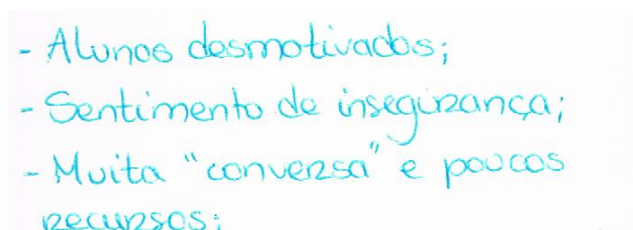 - Alunos desmotivados;
- Sentimento de insegurança;
- Muita "conversa" e poucos
recursos;